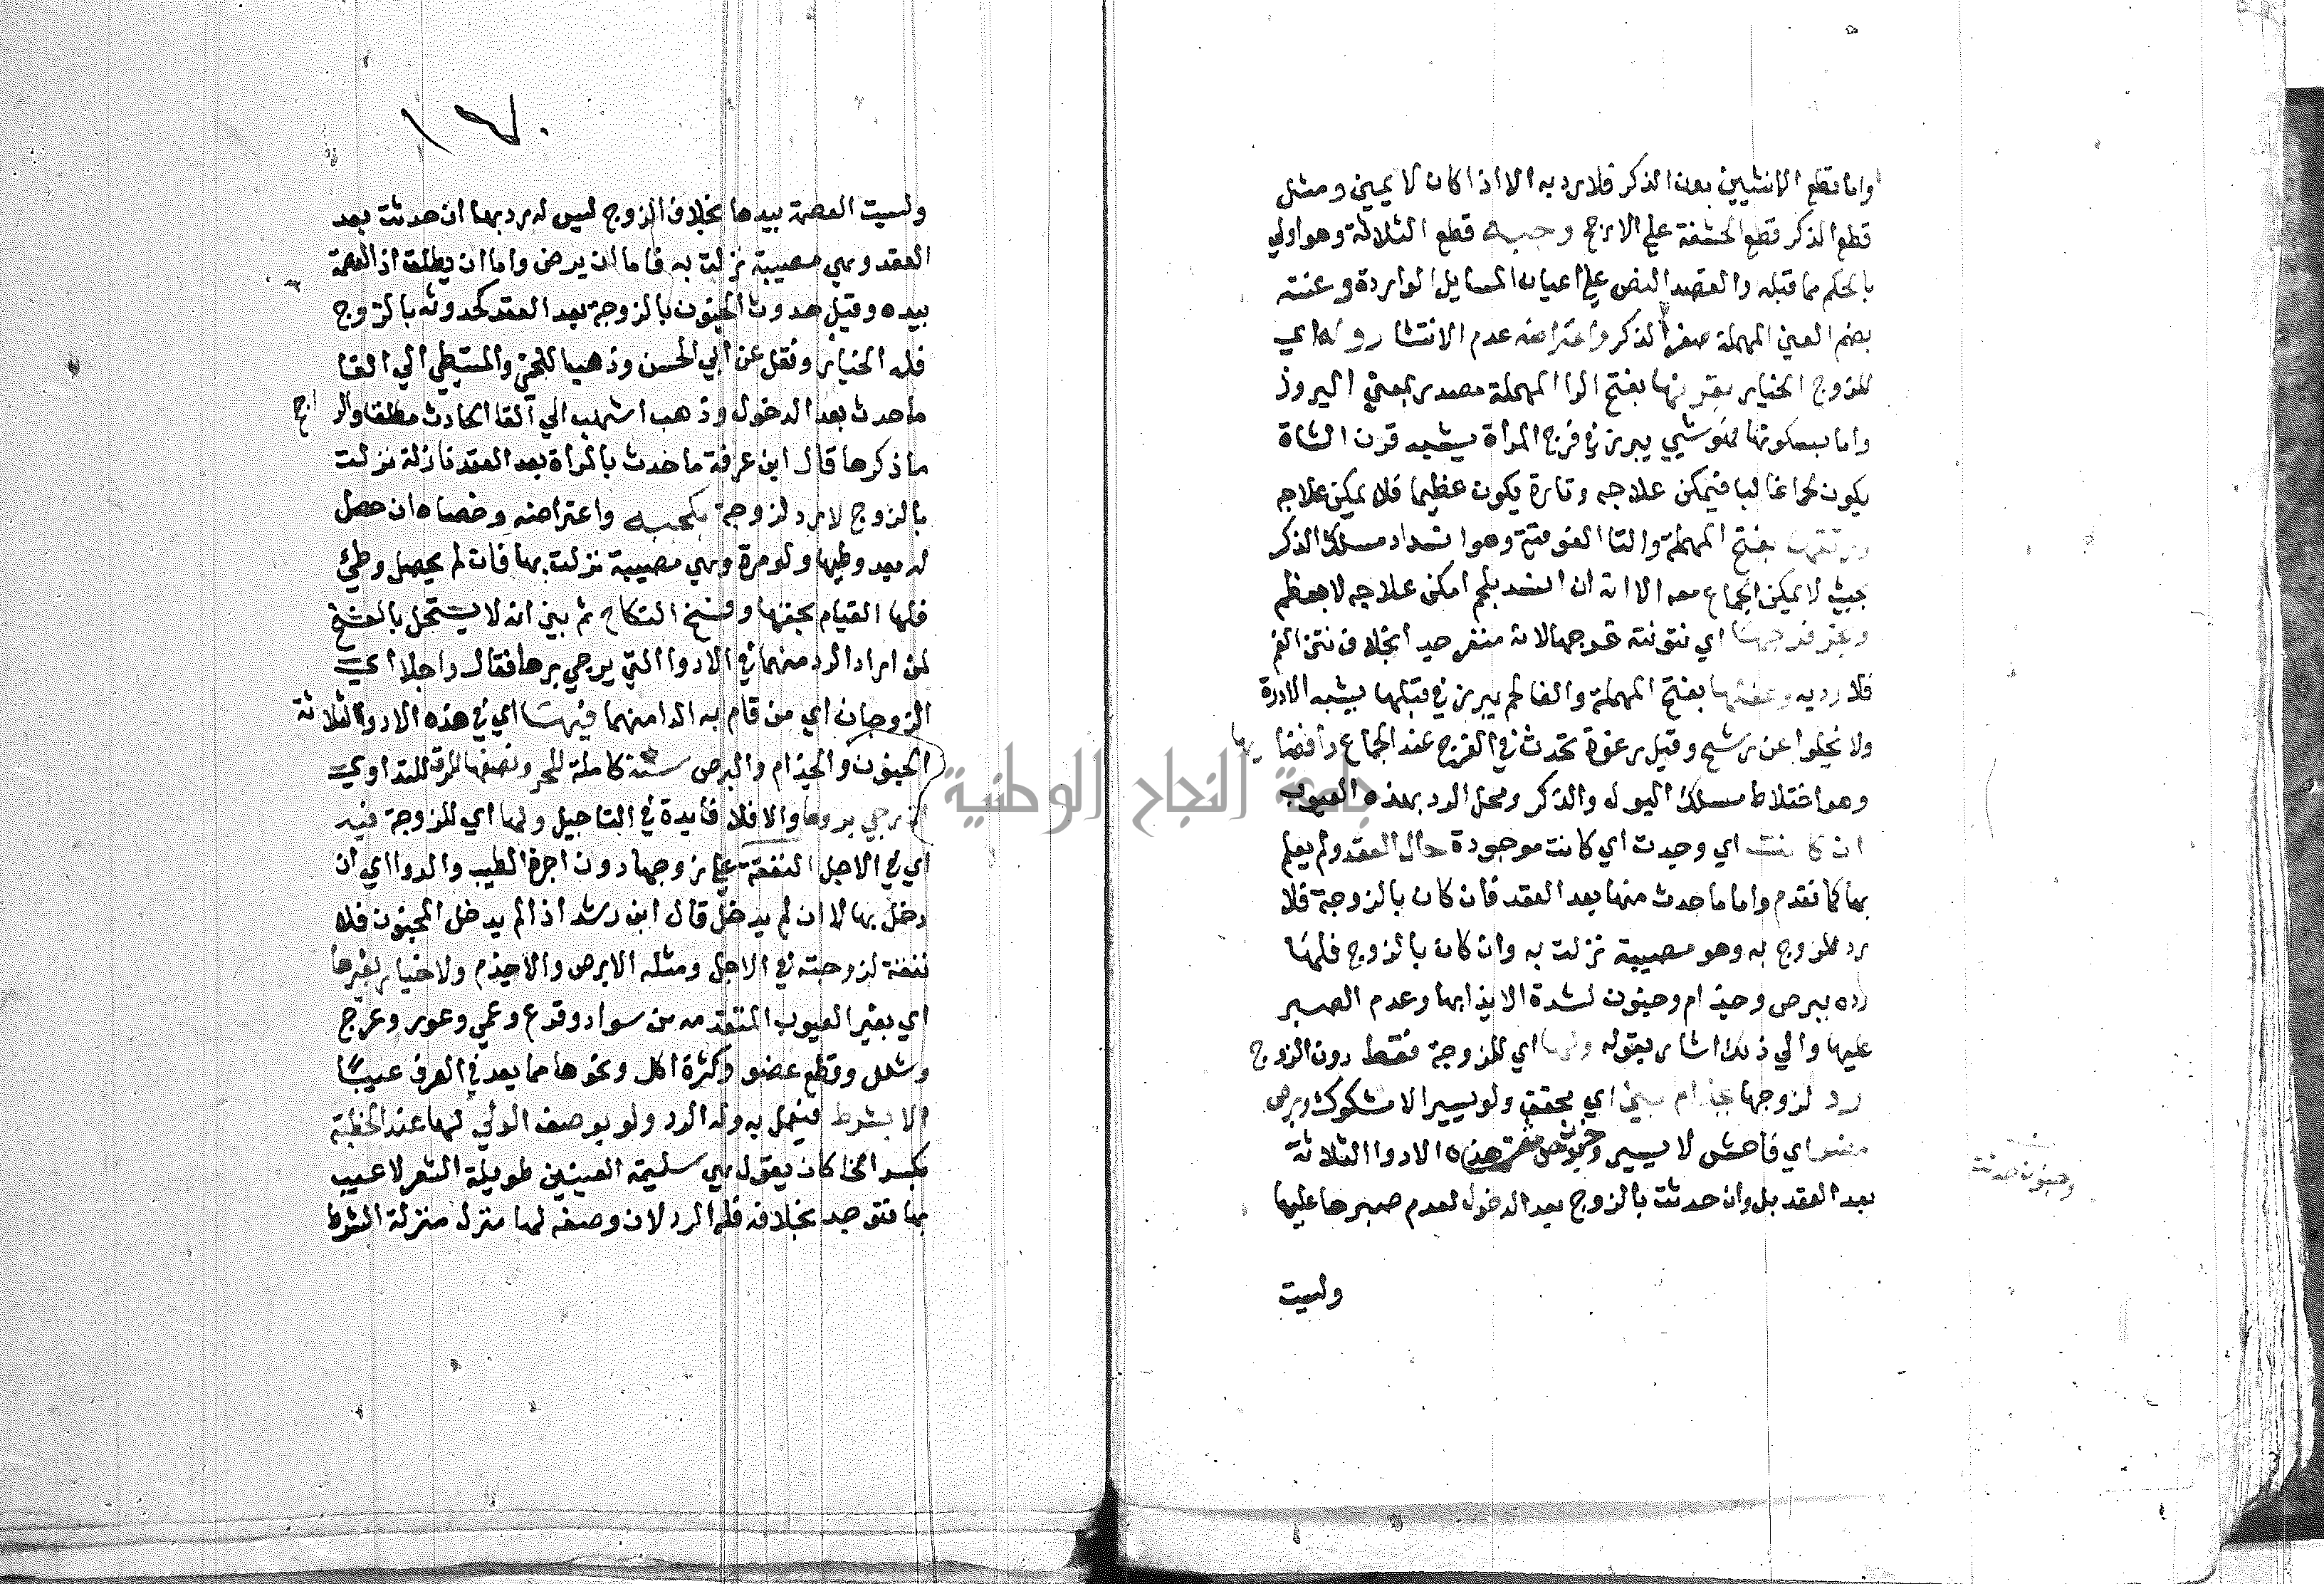 واما قطع الانثيين بدون الذكر فلا رد به الا اذا كان لا يمني ومثل
قطع الذكر قطع الحشفة علي الارجح وجبه قطع الثلاثة وهو اولي
بالحكم مما قبله والقصد النص علي اعيان المسايل الواردة وعنته
بضم العين المهملة صغر الذكر واعتراضه عدم الانتشار ولها اي
للزوج الخيار بقرنها بفتح الرا المهملة مصدر بمعني البروز
واما بسكونها فهو شي يبرز في فرج المراة يشبه قرن الشاة
يكون لحما غالبا فيمكن علاجه وتارة يكون عظيما فلا يمكن علاجه
ورتقها بفتح المهملة والتا الفوقية وهو انسداد مسلك الذكر
بحيث لا يمكن الجماع معه الا انه ان انسد بلحم امكن علاجه لا بعظم
وبخر فرجها اي نتونته لانه منفر جدا بخلاف نتن الفم
فلا رد به وعفلها بفتح المهملة والفا لحم يبرز في قبلها يشبه الادرة
ولا يخلوا عن رشح وقيل رغوة تحدث في الفرج عند الجماع وافضايها
وهو اختلاط مسلك البول والذكر ومحل الرد بهذه العيوب
ان كانت اي وجدت اي كانت موجودة حال العقد ولم يعلم
بها كما تقدم واما ما حدث منها بعد العقد فان كان بالزوجة فلا
رد للزوج به وهو مصيبة نزلت به وان كان بالزوج فلها
رده ببرص وجذام وجنون لشدة الايذا بها وعدم الصبر
عليها والي ذلك اشار بقوله ولها اي للزوجة فقط دون الزوج
رد لزوجها بجذام بين اي محقق ولو يسيرا لا مشكوك وبرص
مضر اي فاحش لا يسير هذه الادوا الثلاثة
وجنون حدثت
بعد العقد بل وان حدثت بالزوج بعد الدخول لعدم صبرها عليها
وليست
١٦٧٠
وليست العصمة بيدها بخلاف الزوج ليس له رد بها ان حدثت بعد
العقد وهي مصيبة نزلت به فاما ان يرضي واما ان يطلق اذ العصمة
بيده وقيل حدوث الجنون بالزوجة بعد العقد كحدوثه بالزوج
فله الخيار ونقل عن ابي الحسن وذهب اللخمي والمتيطي الي الغا
ما حدث بعد الدخول وذهب اشهب الي الغا الحادث مطلقا والراجح
ما ذكرها قال ابن عرفة ما حدث بالمراة بعد العقد نازلة نزلت
بالزوج لا رد لزوجة بكجبه واعتراضه وخصاه ان حصل
له بعد وطيها ولو مرة وهي مصيبة نزلت بها فان لم يحصل وطئ
فلها القيام بحقها وفسخ النكاح ثم بين انه لا يستعجل بالفسخ
لمن اراد الرد منهما في الادوا التي يرجي برها فقال واجلا اي
الزوجان اي من قام به الدا منهما فيها اي في هذه الادوا الثلاثة
الجنون والجذام والبرص سنة كاملة للحر ونصفها للرق للتداوي
ان رجي بروها والا فلا فايدة في التاجيل ولها اي للزوجة فيه
اي في الاجل النفقة علي زوجها دون اجرة الطبيب والدوا اي ان
دخل بها لا ان لم يدخل قال ابن رشد اذا لم يدخل المجنون فلا
نفقة لزوجته في الاجل ومثله الابرص والاجذم ولا خيار بغيرها
اي بغير العيوب المتقدمه من سواد وقرع وعمي وعور وعرج
وشلل وقطع عضو وكثرة اكل ونحوها مما يعد في العرف عيبا
الا بشرط فيعمل به وله الرد ولو بوصف الولي لها عند الخطبة
بكسر الخا كان يقول هي سليمة العينين طويلة الشعر لا عيب
بها فتوجد بخلافه فله الرد لان وصفه لها منزل منزلة الشرط
جامعة النجاح الوطنية